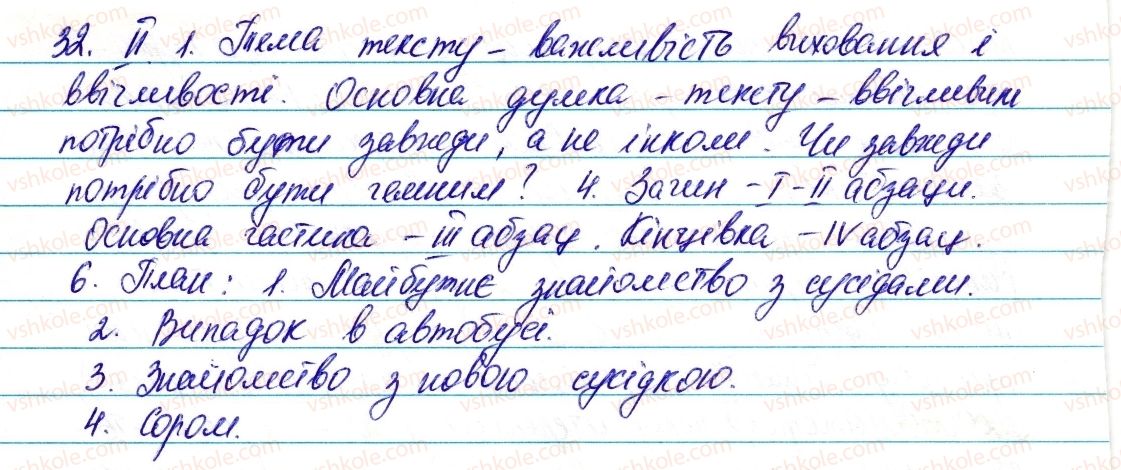 32. II. 1. Тема тексту – важливість виховання і
ввічливості. Основна думка – тексту – ввічливим
потрібно бути завжди, а не інколи. Чи завжди
потрібно бути чемним? 4. Зачин – I – II абзаци.
Основна частина – III абзац. Кінцівка – IV абзац.
6. План: 1. Майбутнє знайомство з сусідами.
2. Випадок в автобусі.
3. Знайомство з новою сусідкою.
4. Сором.